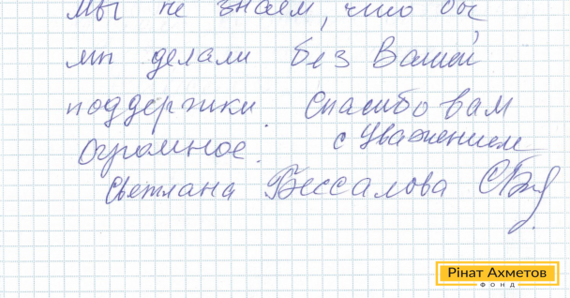 Мы не знаем, что бы
мы делали без Вашей
поддержки. Спасибо вам
огромное. с уважением
Светлана Бессалова
Рінат Ахметов
ФОНД